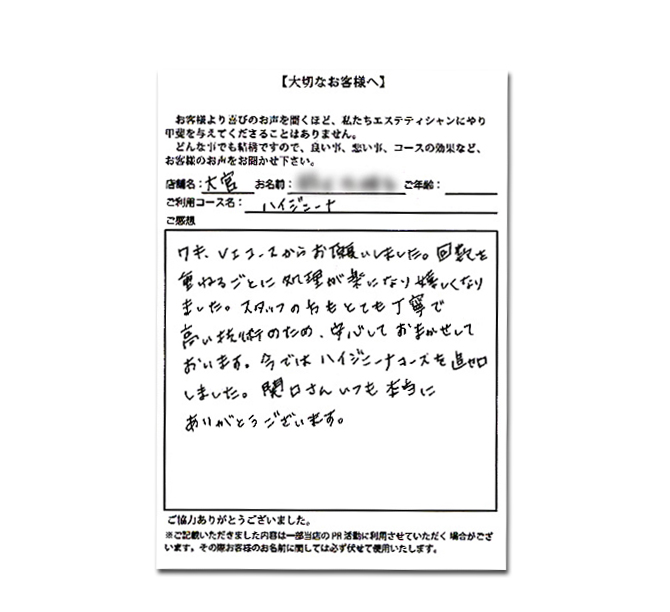 【大切なお客様へ】
お客様より喜びのお声を聞くほど、私たちエステティシャンにやり
甲斐を与えてくださることはありません。
どんな事でも結構ですので、良い事、悪い事、コースの効果など、
お客様のお声をお聞かせ下さい。
店舗名：大宮 お名前： ご年齢：
ご利用コース名： ハイジニーナ
ご感想
ワキ、Vエコースからお願いしました。回数を
重ねるごとに処理が楽になり嬉しくなり
ました。スタッフの方もとても丁寧で
高い技術のため、安心しておまかせして
おります。今ではハイジニーナコースを追加
しました。関口さんいつも本当に
ありがとうございます。
ご協力ありがとうございました。
※ご記載いただきました内容は一部当店のPR活動に利用させていただく場合がござ
います。その際お客様のお名前に関しては必ず伏せて使用いたします。